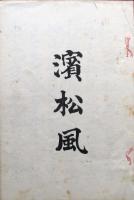 濱松風